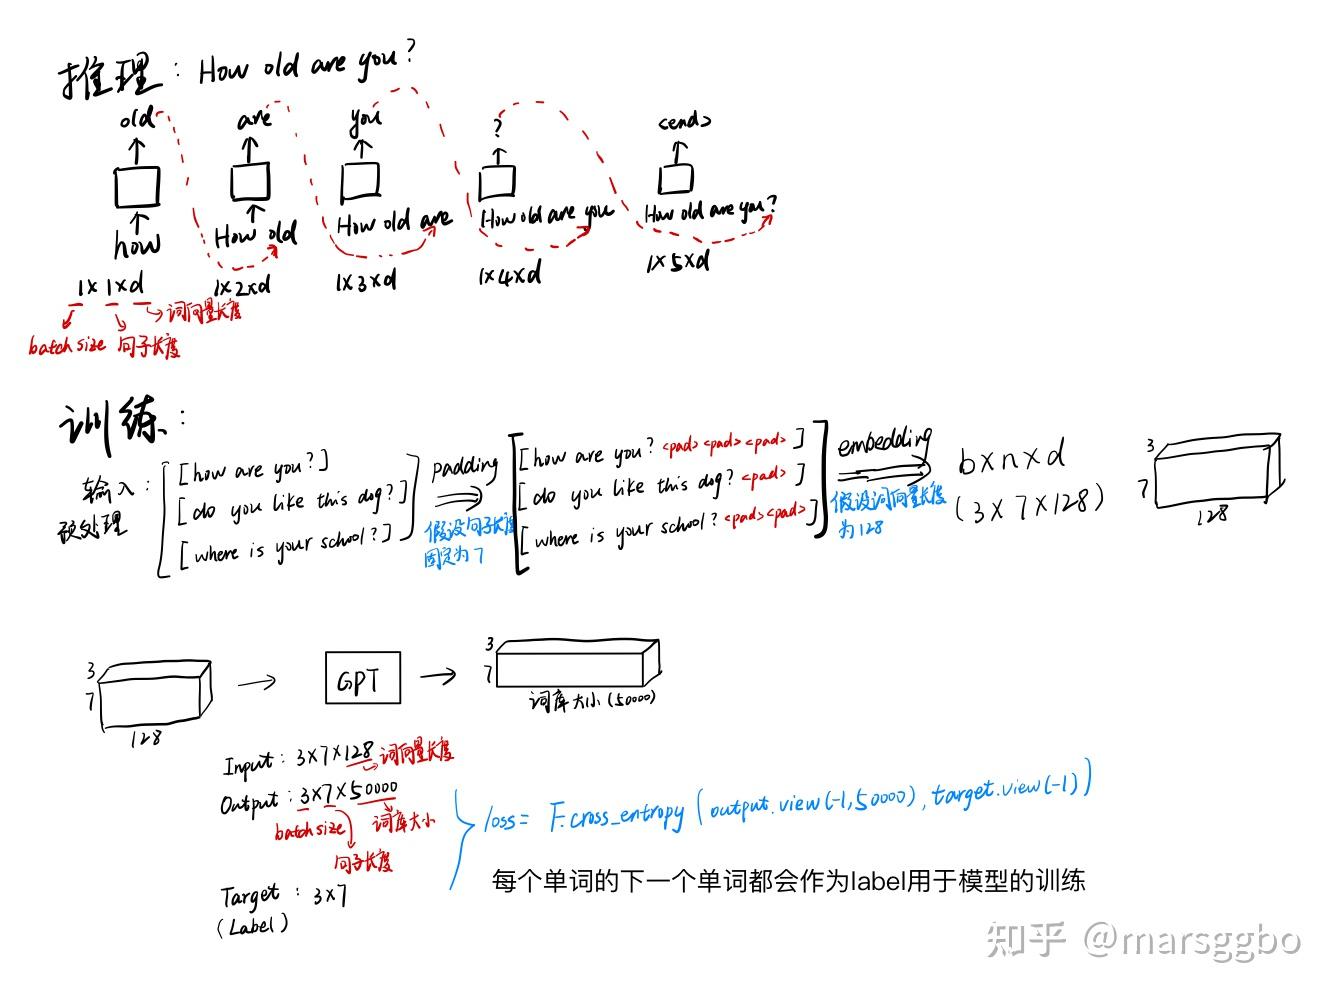 推理: How old are you?
old are you ? <end>
how How old How old are How old are you How old are you?
1×1×d 1×2×d 1×3×d 1×4×d 1×5×d
词向量长度
batch size 句子长度
训练:
输入:
预处理
[how are you?]
[do you like this dog?]
[where is your school?]
padding
假设句子长度
固定为7
[how are you? <pad> <pad> <pad>]
[do you like this dog? <pad>]
[where is your school? <pad> <pad>]
embedding
假设词向量长度
为128
b×n×d
(3×7×128)
3
7
128
3
7
128
GPT
3
7
词库大小(50000)
Input: 3×7×128 词向量长度
Output: 3×7×50000
batch size 词库大小
句子长度
Target: 3×7
(Label)
loss= F.cross_entropy(output.view(-1,50000), target.view(-1))
每个单词的下一个单词都会作为label用于模型的训练
知乎 @marsggbo